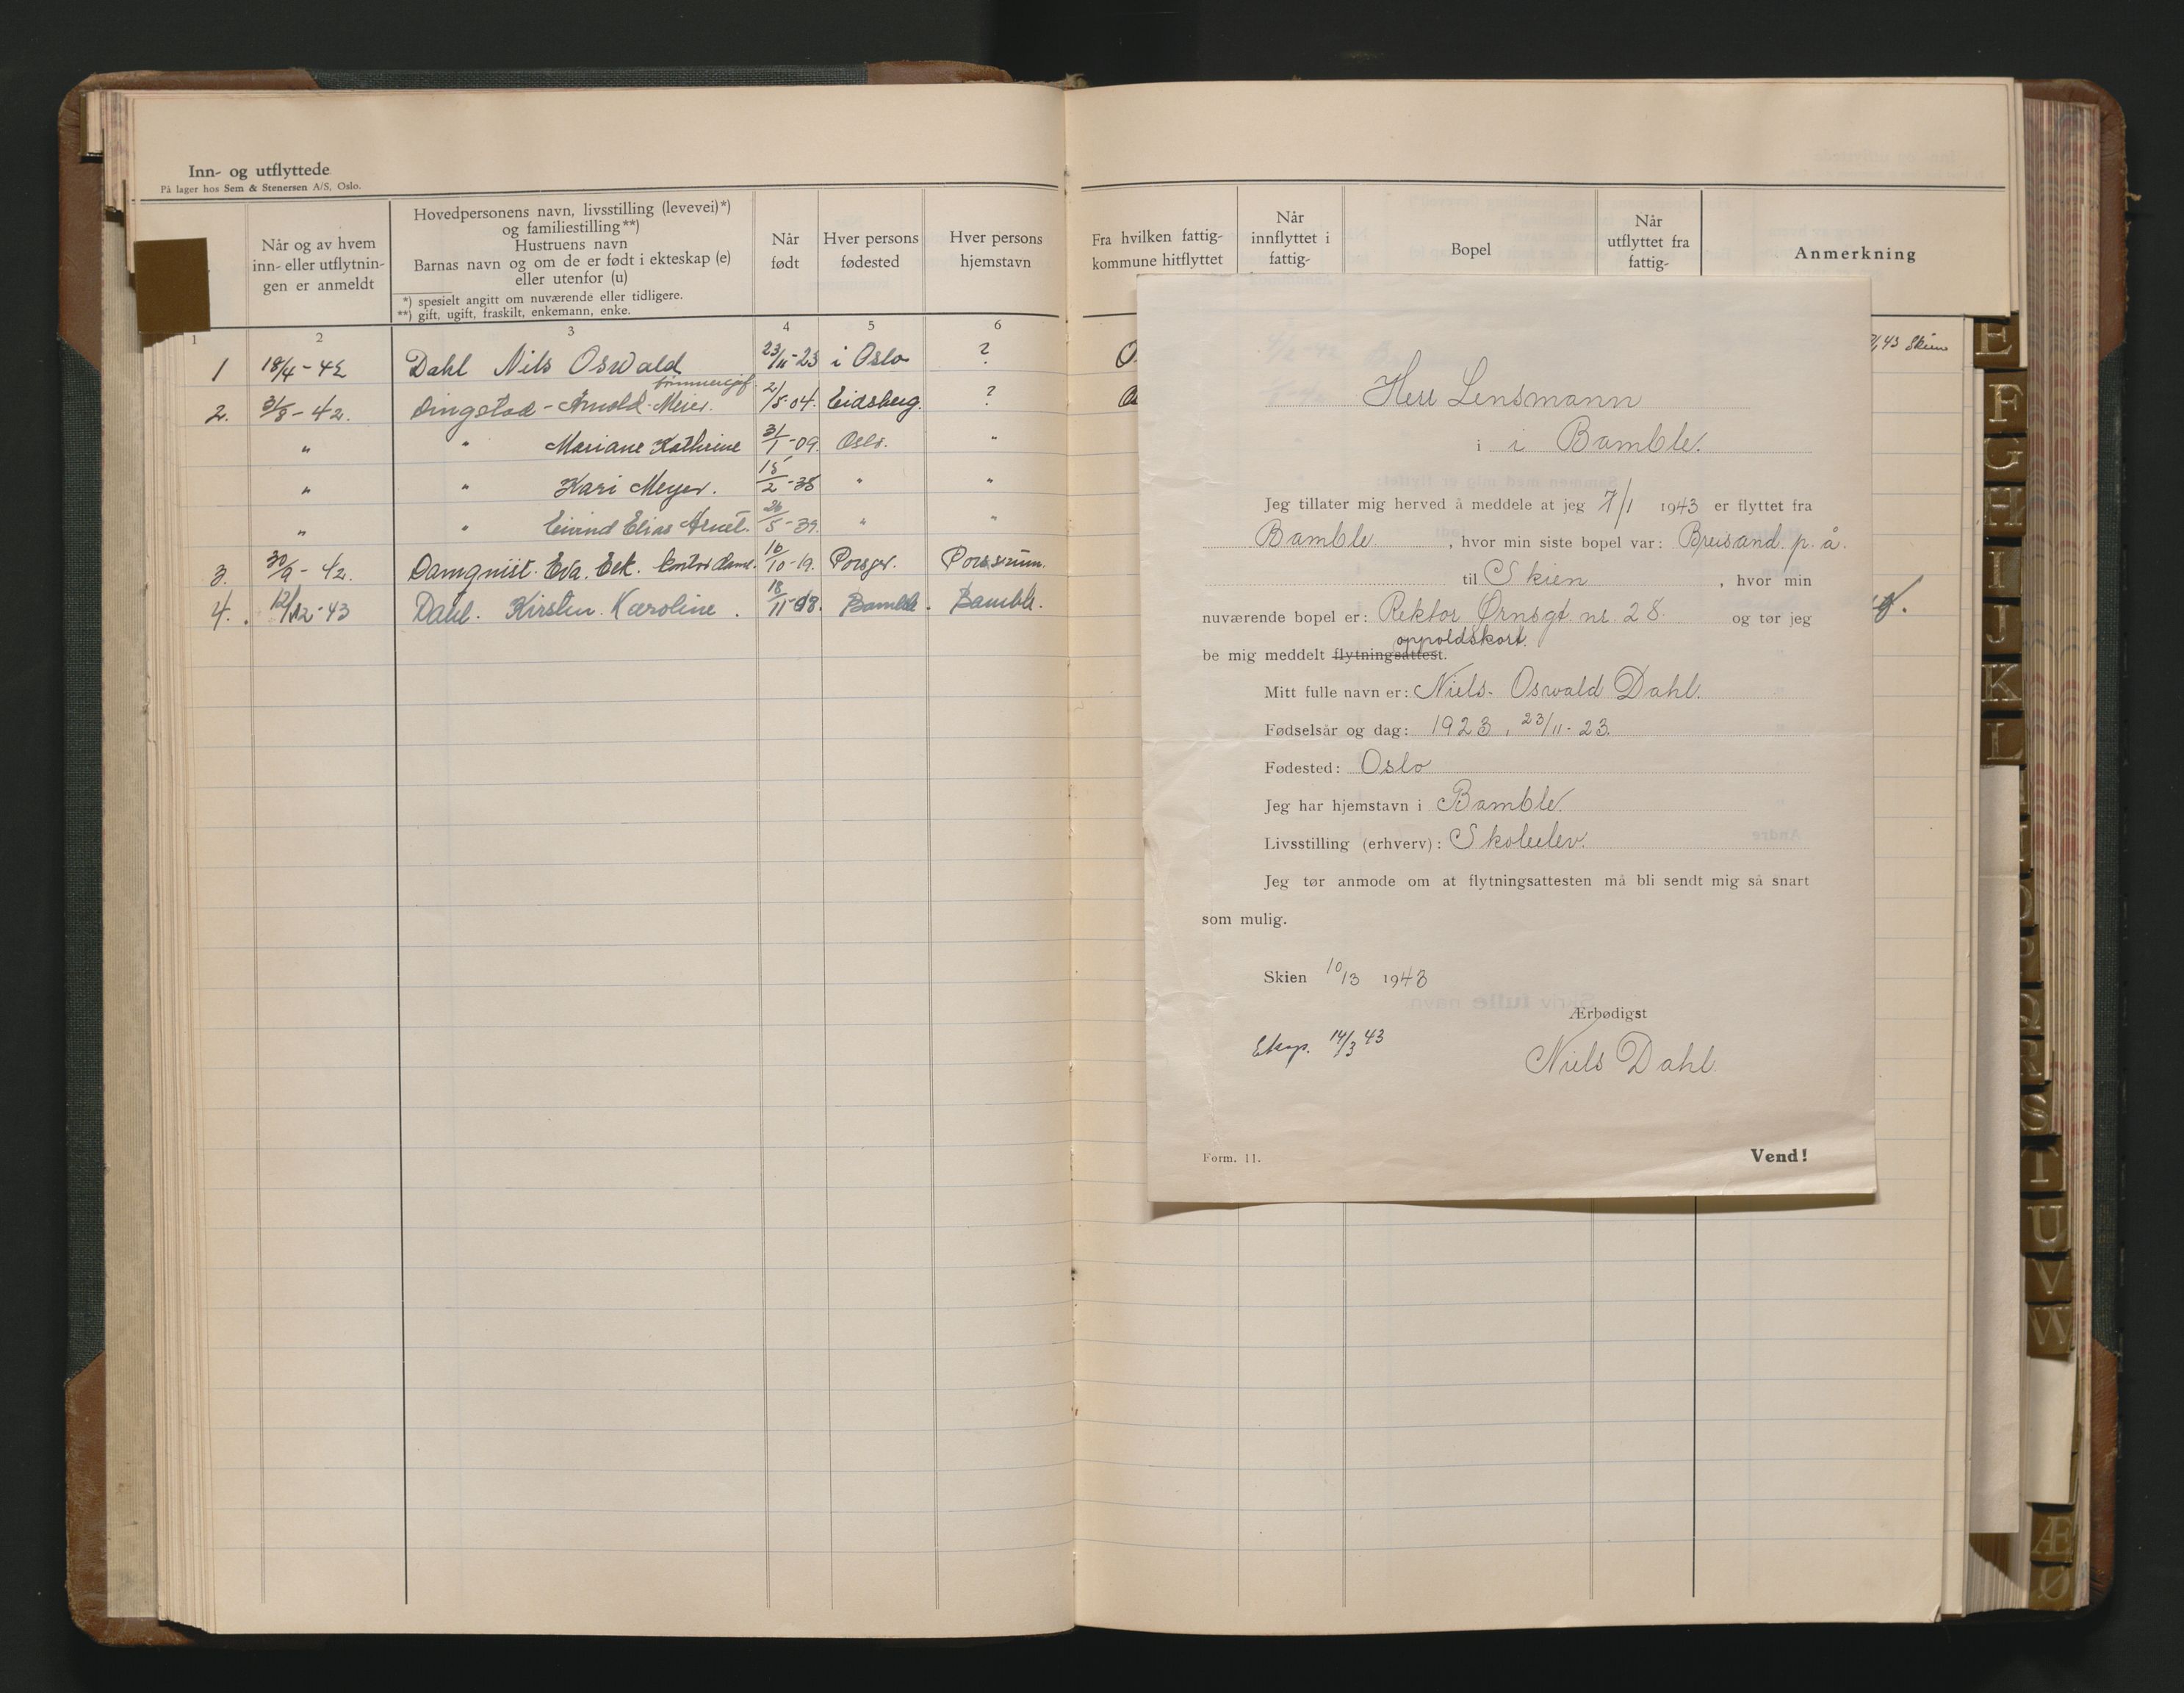 Inn- og utflyttede
På lager hos Sem & Stenersen A/S, Oslo.
Når og av hvem
inn- eller utflytnin-
gen er anmeldt
Hovedpersonens navn, livsstilling (levevei)*)
og familiestilling**)
Hustruens navn
Barnas navn og om de er født i ekteskap (e)
eller utenfor (u)
*) spesielt angitt om nuværende eller tidligere.
**) gift, ugift, fraskilt, enkemann, enke.
Når
født
Hver persons
fødested
Hver persons
hjemstavn
1 2 3 4 5 6
1 18/4-42 Dahl Nils Oswald 23/11-23 i Oslo ?
2. 31/8-42. Dingstad - Arnold Meier. 2/5-04. Eidsberg. ?
" " Mariane Kathrine 31/1-09. Oslo. "
" " Kari Meyer. 15/2-35 " "
" " Eivind Elias 26/5-39. " "
3. 30/9-42. Damqvist. Eva. Eek. kontordame. 16/10-19. Porsgr.
4. 12/12-43 Dahl. Kirsten. Karoline. 18/11- Bamble. Bamble.
Fra hvilken fattig-
kommune hitflyttet
Når
innflyttet i
fattig-
Bopel
Når
utflyttet fra
fattig-
Anmerkning
43 Skien
Herr Lensmann
i i Bamble.
Jeg tillater mig herved å meddele at jeg 7/1 1943 er flyttet fra
Bamble. , hvor min siste bopel var: Breisand. p. å.
til Skien , hvor min
nuværende bopel er: Rektor Ørnsgt. nr. 28. og tør jeg
oppoldskort.
be mig meddelt flytningsattest.
Mitt fulle navn er: Niels. Oswald Dahl.
Fødselsår og dag: 1923, 23/11-23.
Fødested: Oslo
Jeg har hjemstavn i Bamble.
Livsstilling (erhverv): Skoleelev.
Jeg tør anmode om at flytningsattesten må bli sendt mig så snart
som mulig.
Skien 10/3 1943
Ærbødigst
Eksp. 14/3 43
Niels Dahl.
Form. 11.
Vend!
E
F
G
H
I
J
K
L
Q
R
S
T
U
V
W
Æ
Ø